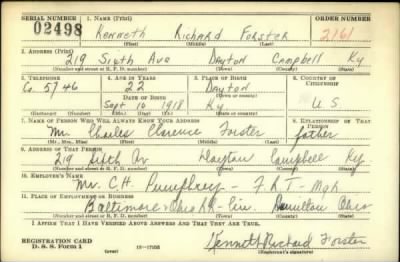 SERIAL NUMBER 1. NAME (Print) ORDER NUMBER
02498 Kenneth Richard Forster 2161
(First) (Middle) (Last)
2. ADDRESS (Print)
219 Sixth Ave Dayton Campbell Ky
(Number and street or R. F. D. number) (Town) (County) (State)
3. TELEPHONE 4. AGE IN YEARS 5. PLACE OF BIRTH 6. COUNTRY OF CITIZENSHIP
Co. 5746 22 Dayton
DATE OF BIRTH (Town or county)
Sept 10 1918 Ky. U S
(Exchange) (Number) (Mo.) (Day) (Yr.) (State or country)
7. NAME OF PERSON WHO WILL ALWAYS KNOW YOUR ADDRESS 8. RELATIONSHIP OF THAT PERSON
Mr. Charles Clarence Forster father
(Mr., Mrs., Miss) (First) (Middle) (Last)
9. ADDRESS OF THAT PERSON
219 Sixth Av Dayton Campbell Ky.
(Number and street or R. F. D. number) (Town) (County) (State)
10. EMPLOYER'S NAME
Mr. C.H. Pumphrey - F.R.T - Mgh
11. PLACE OF EMPLOYMENT OR BUSINESS
Baltimore & Ohio RR. Hamilton Ohio
(Number and street or R. F. D. number) (Town) (County) (State)
I AFFIRM THAT I HAVE VERIFIED ABOVE ANSWERS AND THAT THEY ARE TRUE.
REGISTRATION CARD
D. S. S. Form 1 16-17105 Kenneth Richard Forster
(Registrant's signature)